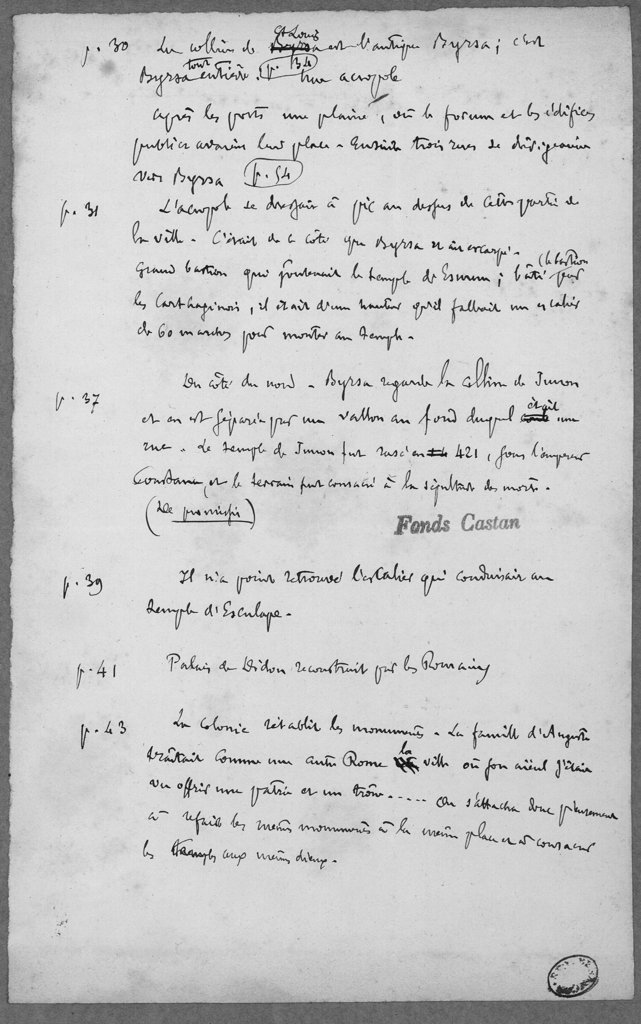 p. 30 La colline de St Louis est l'antique Byrsa ; c'est
Byrsa tout entière. p. 34 Une acropole
Après les ports une plaine, où le forum et les édifices
publics avaient leur place - Ensuite trois rues se dirigeaient
vers Byrsa p. 54
p. 31 L'acropole se dressait à pic au dessus de cette partie de
la ville - C'était de ce côté que Byrsa était escarpé.
Grand bastion qui soutenait le temple de Esmun ; (le bastion bâti par
les Carthaginois, il était d'une hauteur qu'il fallait un escalier
de 60 marches pour monter au temple.
p. 37 Du côté du nord - Byrsa regarde la colline de Junon
et en est séparée par un vallon au fond duquel était une
rue. Le temple de Junon fut rasé en 421, sous l'empereur
Constance, et le terrain fut consacré à la sépulture des morts.
(De promissis)
Fonds Castan
p. 39 Il n'a point retrouvé l'escalier qui conduisait au
temple d'Esculape.
p. 41 Palais de Didon reconstruit par les Romains
p. 43 La colonie rétablit les monuments - La famille d'Auguste
traitait comme une autre Rome la ville où son aïeul s'était
vu offrir une patrie et un trône ..... On s'attacha donc pieusement
à refaire les mêmes monuments à la même place et à consacrer
les temples aux mêmes dieux.